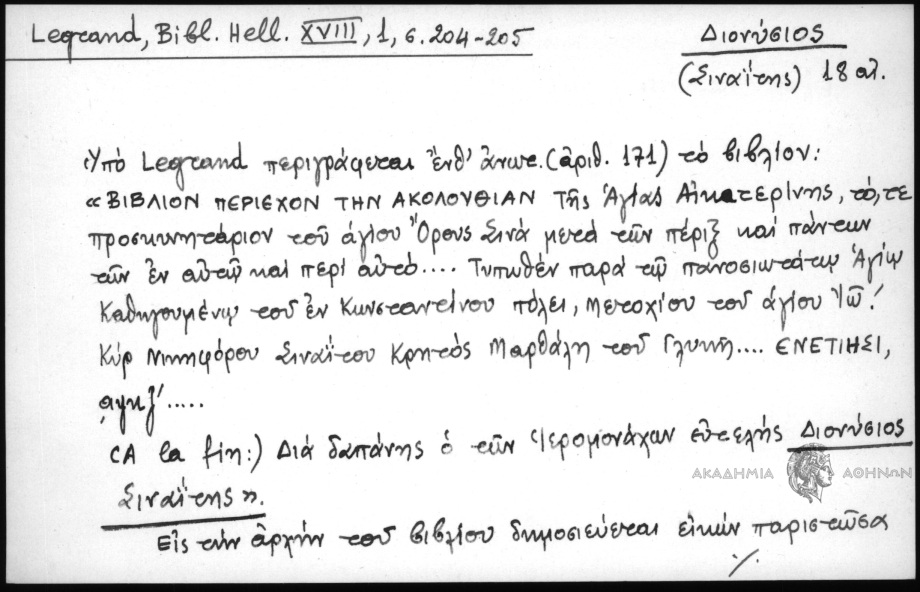 Legrand, Bibl. Hell. XVIII, 1, σ. 204-205
Διονύσιος
(Σιναΐτης) 18 αἰ.
Ὑπό Legrand περιγράφεται ἔνθ' ἀνωτ. (ἀριθ. 171) τό βιβλίον:
«ΒΙΒΛΙΟΝ ΠΕΡΙΕΧΟΝ ΤΗΝ ΑΚΟΛΟΥΘΙΑΝ Τῆς Ἁγίας Αἰκατερίνης, τό, τε
προσκυνητάριον τοῦ ἁγίου Ὄρους Σινᾶ μετά τῶν πέριξ καί πάντων
τῶν ἐν αὐτῷ καί περί αὐτό.... Τυπωθέν παρά τῷ πανοσιωτάτῳ Ἁγίῳ
Καθηγουμένῳ τοῦ ἐν Κωνσταντίνου πόλει, Μετοχίου τοῦ ἁγίου Ἰῶ!
Κύρ Νικηφόρου Σιναΐτου Κρητός Μαρθάλη τοῦ Γλυκῆ.... ΕΝΕΤΙΗΣΙ,
͵αψκζ'.....
(A la fin:) Διά δαπάνης ὁ τῶν Ἱερομονάχων εὐτελής Διονύσιος
Σιναΐτης».
ΑΚΑΔΗΜΙΑ ΑΘΗΝΩΝ
Εἰς τήν ἀρχήν τοῦ βιβλίου δημοσιεύεται εἰκών παριστῶσα
./.